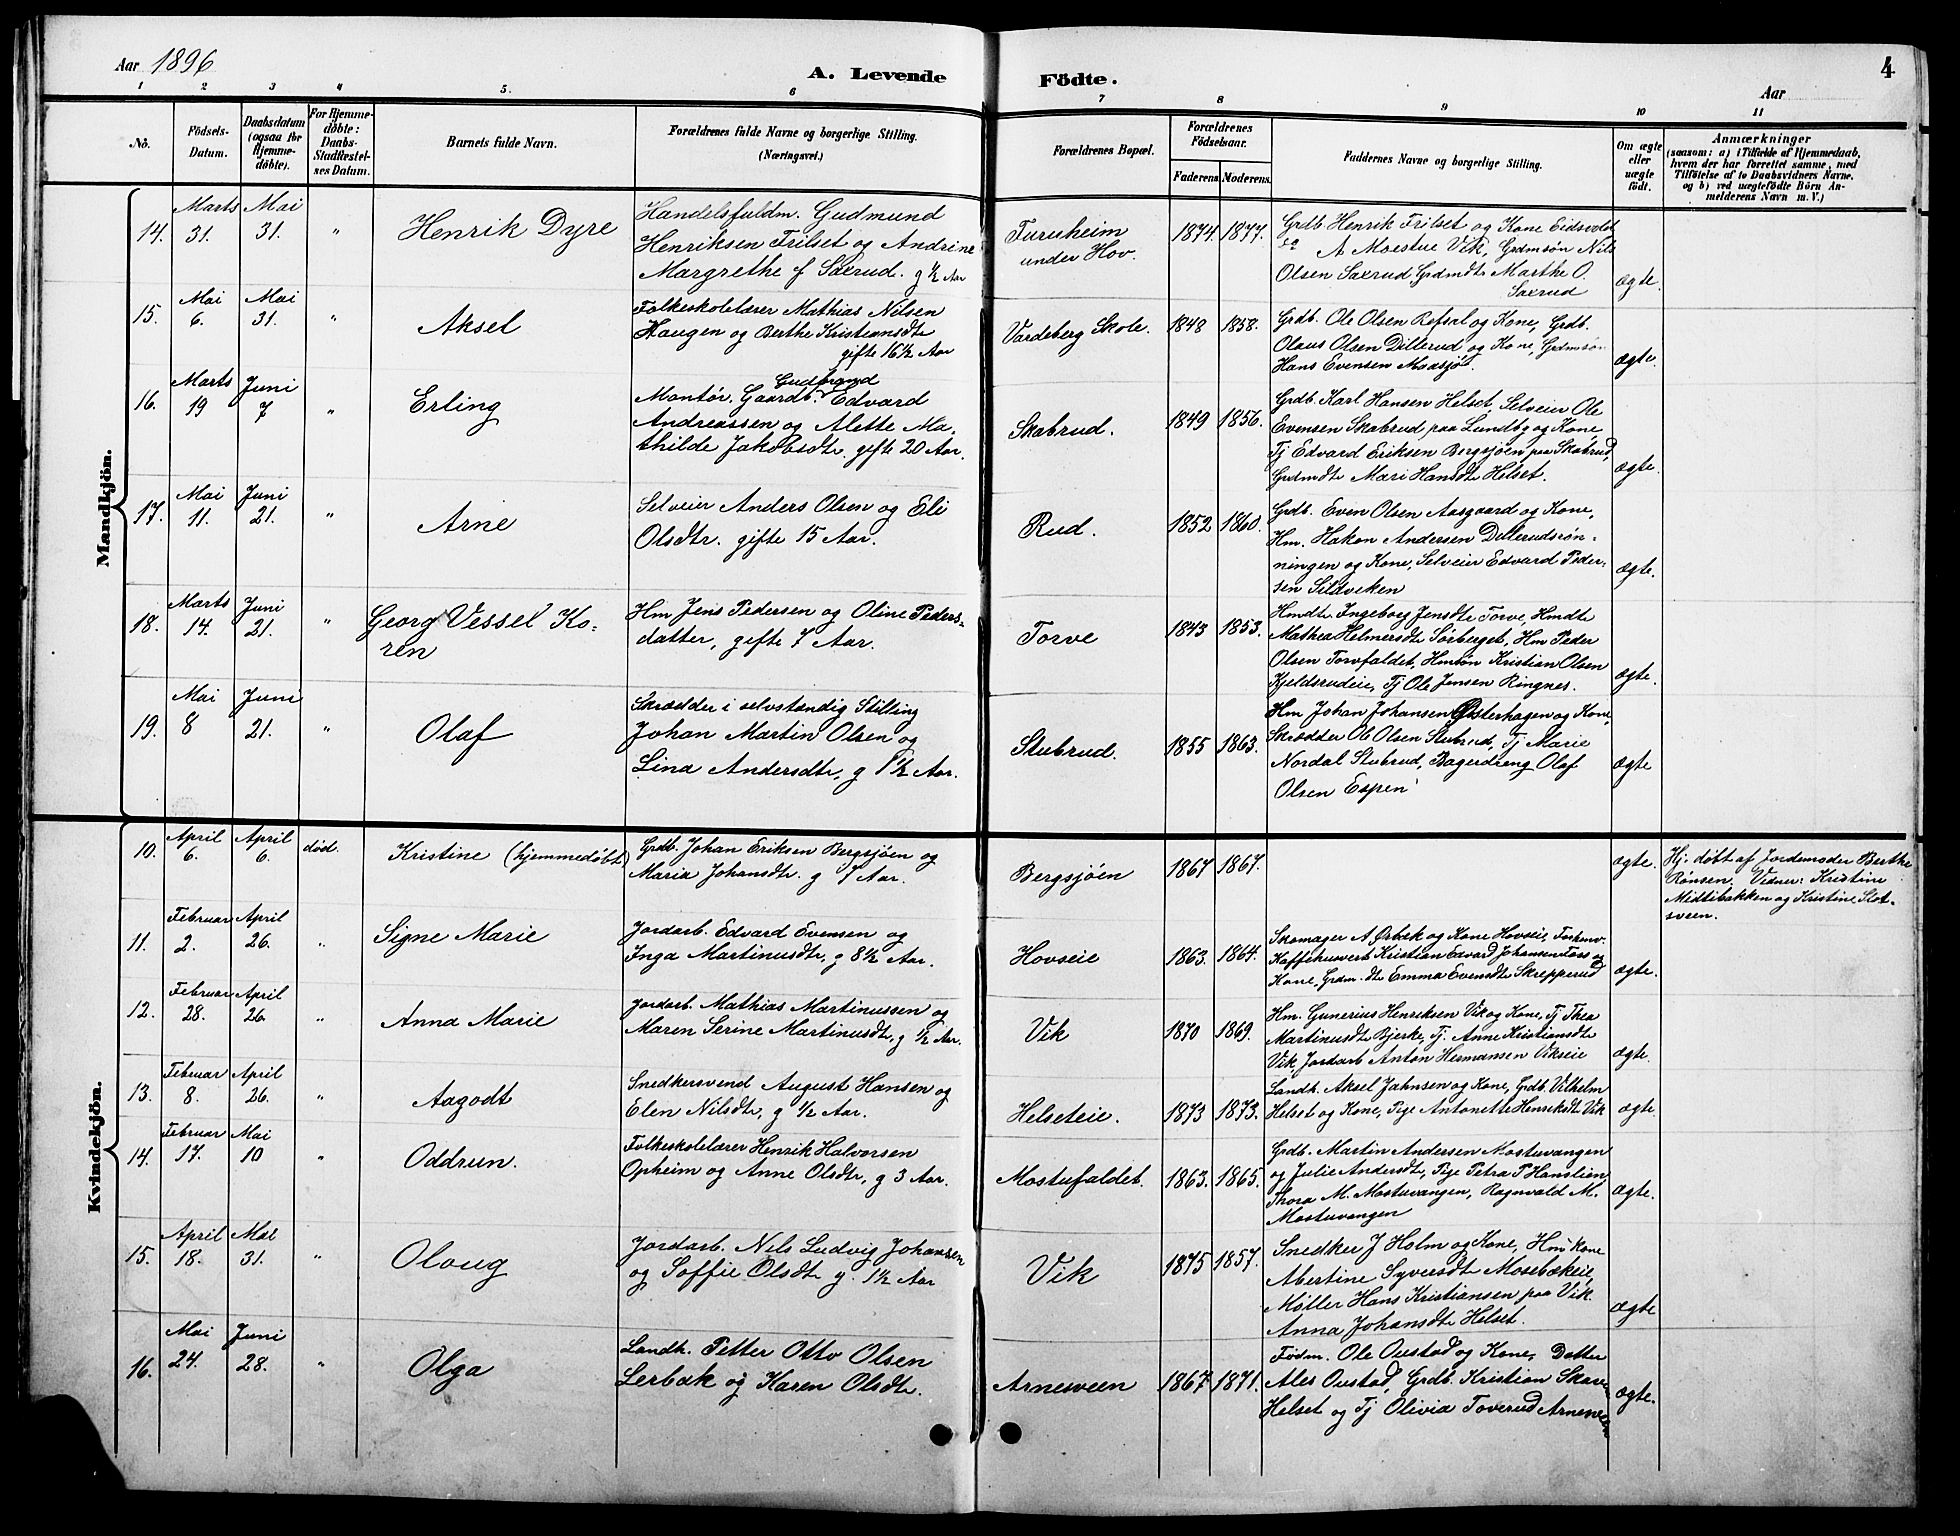 Aar 1896
A. Levende
Födte.
4
Aar
1 2 3 4 5. 6 7 8 9 10 11
No.
Födsels-
Datum.
Daabsdatum
(ogsaa for
Hjemme-
döbte).
For Hjemme-
döbte:
Daabs-
Stadfæstel-
ses Datum.
Barnets fulde Navn.
Forældrenes fulde Navne og borgerlige Stilling.
(Næringsvei.)
Forældrenes Bopæl.
Forældrenes
Födselsaar.
Faderens Moderens.
Faddernes Navne og borgerlige Stilling.
Om ægte
eller
uægte
født.
Anmærkninger
(saasom: a) i Tilfælde af Hjemmedaab,
hvem der har forrettet samme, med
Tilföielse af to Daabsvidners Navne.
og b) ved uægtefödte Börn An-
melderens Navn m. V.)
Mandkjön.
14. Marts 31. Mai 31. " Henrik Dyre
Handelsfuldm. Gudmund
Henriksen Frilset og Andrine
Margrethe f Saxrud. g ½ Aar
Furuheim
under Hov.
1874. 1877.
Grdb Henrik Frilset og Kone Eidsvold
A Moestue Vik, Grdmsøn Nils
Olsen Saxrud Grdmdtr Marthe O.
Saxrud
ægte.
15. Mai 6. Mai 31. " Aksel
Folkeskolelærer Mathias Nilsen
Haugen og Berthe Kristiansdtr
gifte 16½ Aar
Vardeberg Skole.
1848 1858.
Grdb. Ole Olsen Refsal og Kone, Grdb.
Olaus Olsen Dillerud og Kone, Grdmsøn
Hans Evensen Maasjø.
ægte.
16. Marts 19 Juni 7 " Erling
Gudbrand
Montør. Gaardb. Edvard
Andreassen og Alette Ma-
thilde Jakobsdtr. gifte 20 Aar.
Skabrud.
1849 1856.
Grdb. Karl Hansen Helset, Selveier Ole
Evensen Skabrud paa Lundby og Kone
Tj Edvard Eriksen Bergsjøen paa Skabrud,
Grdmdtr Mari Hansdtr Helset.
ægte.
17. Mai 11. Juni 21. " Arne
Selveier Anders Olsen og Eli
Olsdtr. gifte 15 Aar.
Rud.
1852 1860.
Grdb. Even Olsen Aasgaard og Kone,
Hm. Hakon Andersen Dillerudsrøn-
ningen og Kone, Selveier Edvard Peder-
sen Sildviken
ægte.
18. Marts 14. Juni 21. " Georg Vessel Ko-
ren
Hm Jens Pedersen og Oline Peders-
datter, gifte 7 Aar.
Torve
1843 1853.
Hmdtr Ingeborg Jensdtr Torve, Hmdtr
Mathea Helmersdtr Sørberget, Hm Peder
Olsen Torvfaldet, Hmsøn Kristian Olsen
Kjeldsrudeie, Tj Ole Jensen Ringnes.
ægte.
19. Mai 8 Juni 21. " Olaf
Skrædder i selvstændig Stilling
Johan Martin Olsen og
Lina Andersdtr, g 1½ Aar.
Stubrud.
1855 1863.
Hm Johan Johansen Østerhagen og Kone,
Skrædder Ole Olsen Stubrud, Tj Marie
Nordal Stubrud, Bagerdreng Olaf
Olsen Espen
ægte
Kvindekjön.
10. April 6. April 6. død. Kristine (hjemmedøbt)
Grdb. Johan Eriksen Bergsjøen og
Maria Johansdtr. g 7 Aar.
Bergsjöen
1867 1867.
ægte.
Hj. døbt af Jordemoder Berthe
Rønsen. Vidner: Kristine
Midtibakken og Kristine Slot-
sveen.
11. Februar 2. April 26. " Signe Marie
Jordarb. Edvard Evensen og
Inga Martinusdtr, g 8½ Aar.
Hovseie
1863. 1864.
Skomager A Ørbæk og Kone Hovseie, Forhenv.
Kaffehuvert Kristian Edvard Johansen Foss og
Kone, Grdm.dtr Emma Evensdtr Skrepperud
ægte.
12. Februar 28. April 26. " Anna Marie
Jordarb. Mathias Martinussen og
Maren Serine Martinusdtr, g ½ Aar.
Vik
1870 1869.
Hm. Gunerius Henriksen Vik og Kone, Tj Thea
Martinusdtr Bjerke, Tj. Anne Kristiansdtr
Vik, Jordarb Anton Hermansen Vikseie
ægte.
13. Februar 8. April 26. " Aagodt
Snedkersvend August Hansen og
Elen Nilsdtr, g ½ Aar.
Helseteie.
1873 1873.
Landh. Aksel Jahnsen og Kone, Grdb. Vilhelm
Helset og Kone, Pige Antonette Henriksdtr Vik
ægte.
14. Februar 17. Mai 10 " Oddrun.
Folkeskolelærer Henrik Halvorsen
Opheim og Anne Olsdtr, g 3 Aar.
Mostufaldet.
1863. 1865.
Grdb. Martin Andersen Mostuvangen
og Julie Andersdtr, Pige Petra P Hanslien
Thora M. Mostuvangen, Ragnvald M.
Mostuvangen
ægte.
15. April 18. Mai 31. " Oloug
Jordarb. Nels Ludvig Johansen
og Soffie Olsdtr g. 1½ Aar
Vik
1875 1857.
Snedker J Holm og Kone, Hm kone
Abertine Syversdtr Mosebækeie,
Møller Hans Kristiansen paa Vik.
Anna Johansdtr Helset.
ægte
16. Mai 24. Juni 28. " Olga
Landh. Petter Otto Olsen
Lerbæk og Karen Olsdtr.
Arnesveen
1867 1871.
Fødm. Ole Oustad og Kone, Datter
Ales Oustad, Grdb. Kristian Skaven
Helset og Tj Olivia Toverud Arnesveen
ægte.